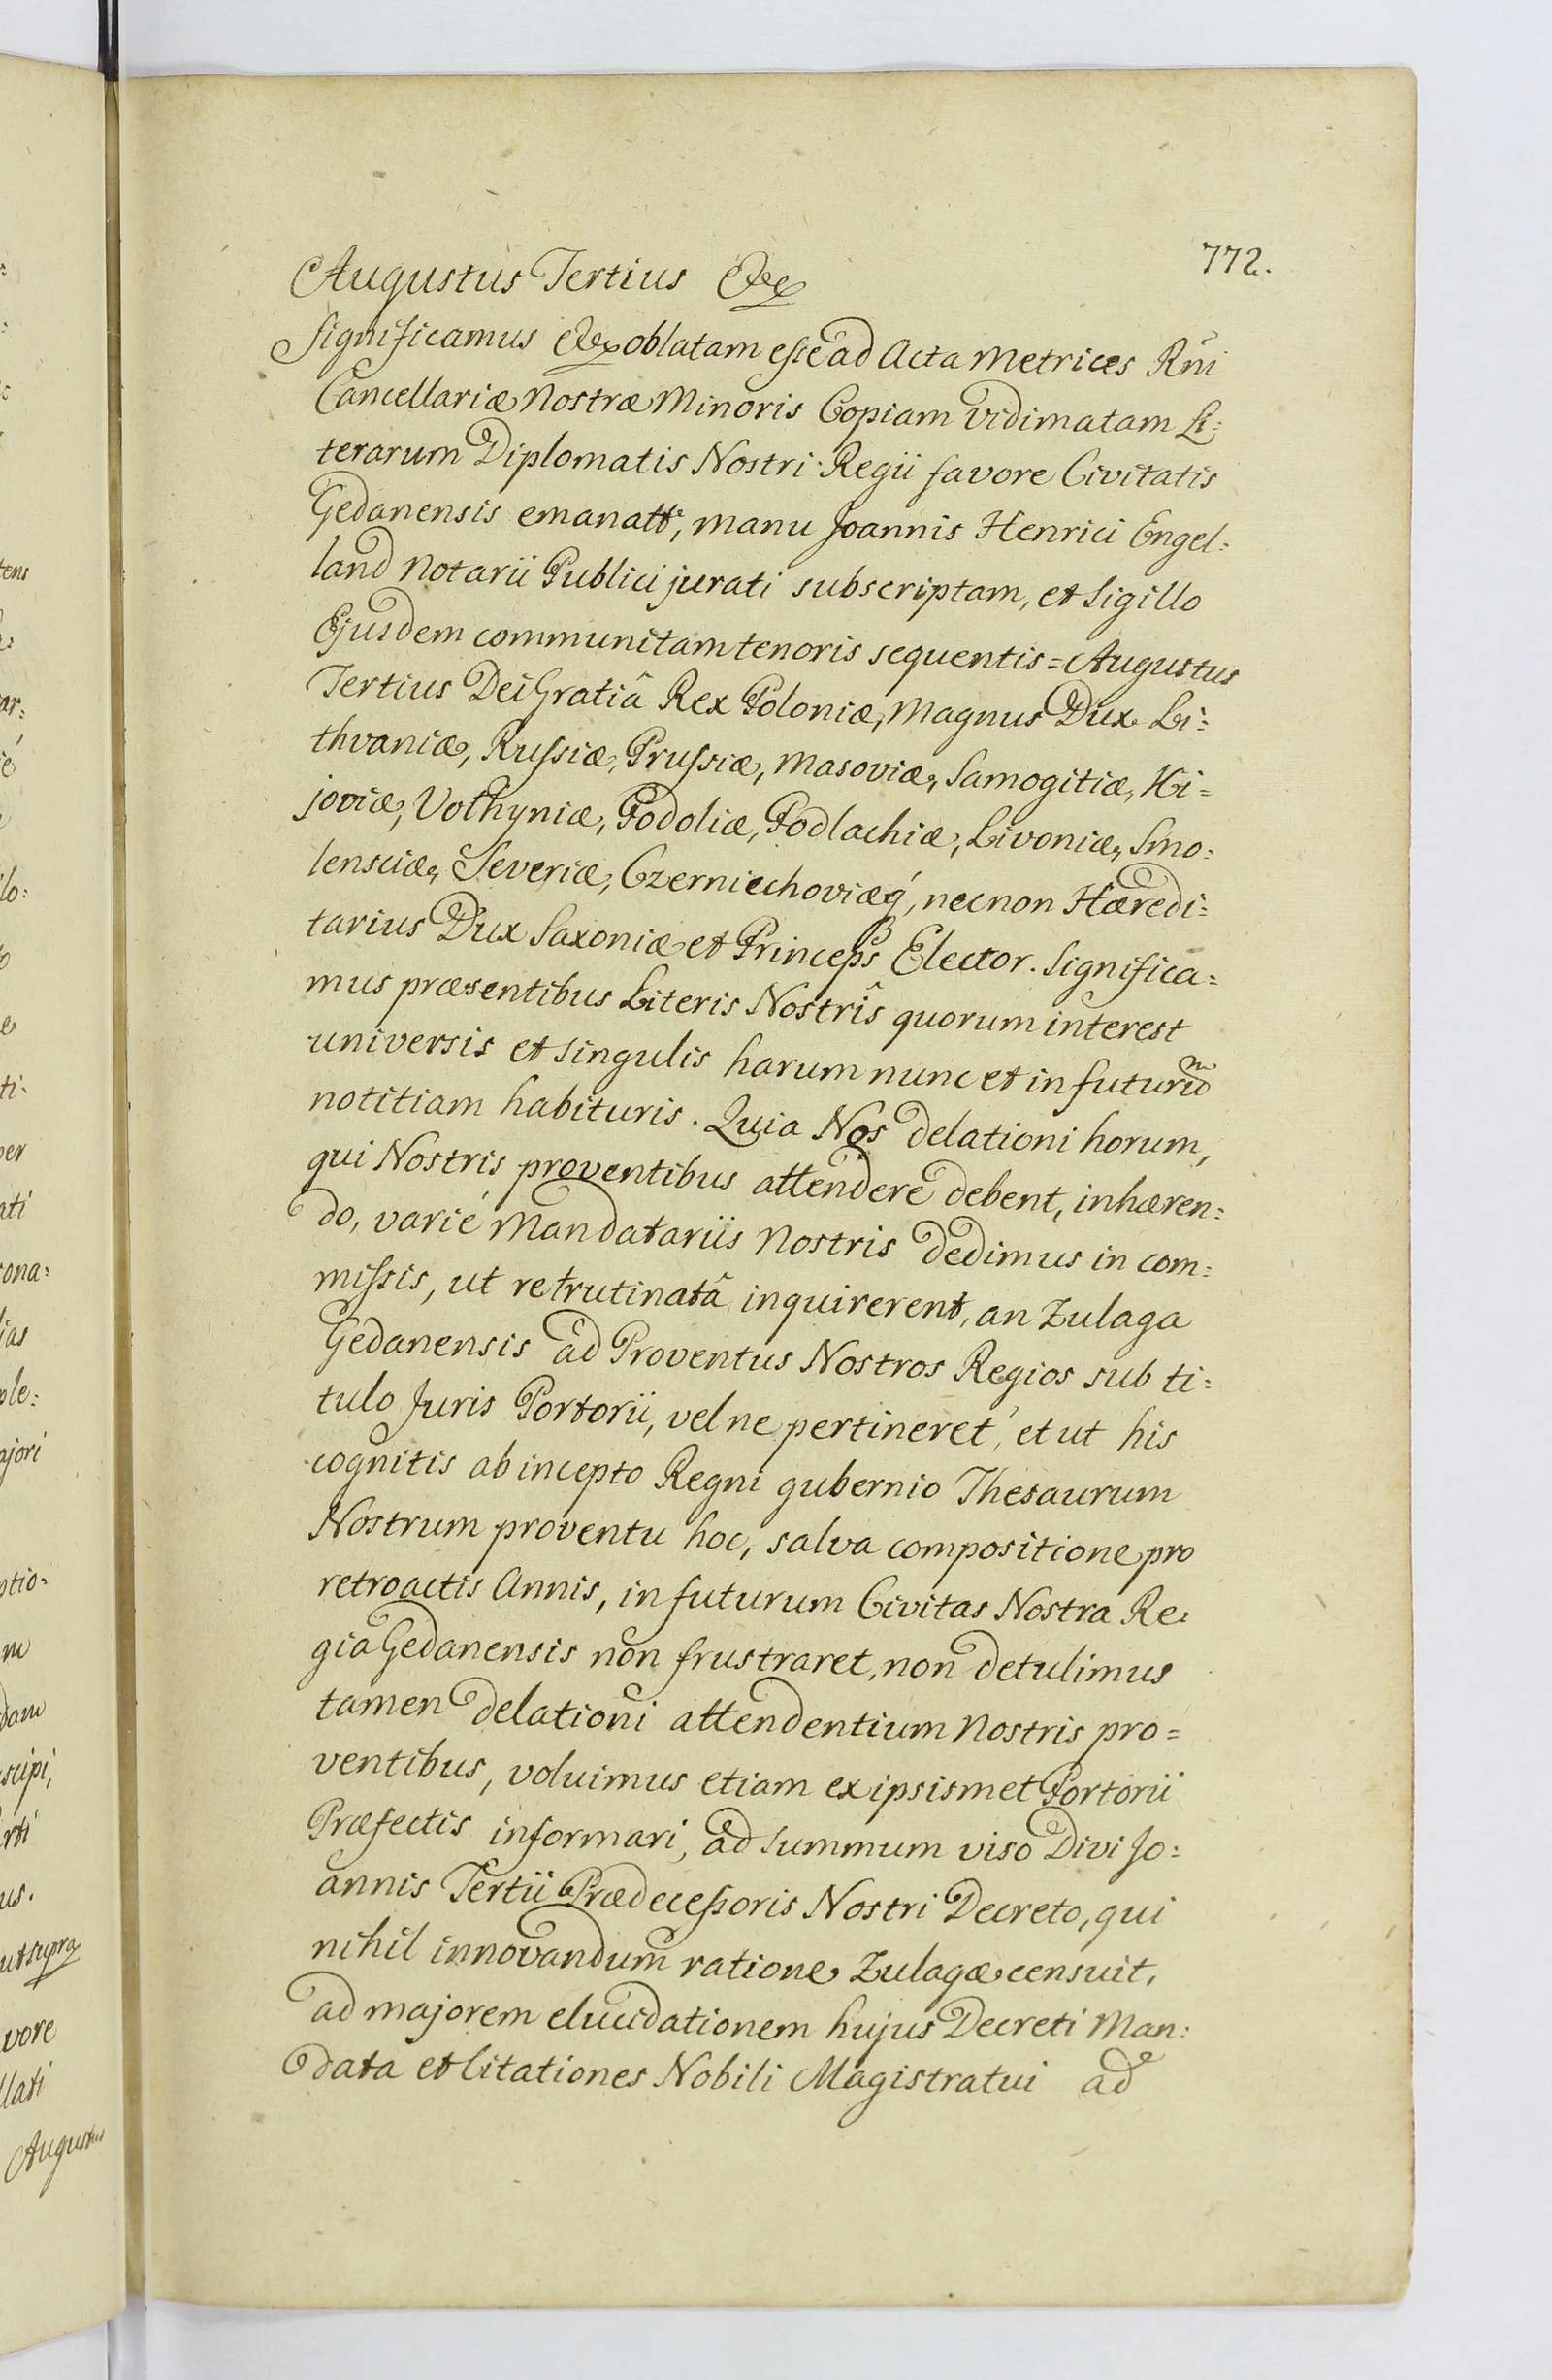 772.
Augustus Tertius &c
Significamus &c oblatam esse ad Acta Metrices Rni
Cancellariæ Nostræ Minoris Copiam Vidimatam Li:
terarum Diplomatis Nostri Regii favore Civitatis
Gedanensis emanatt, manu Joannis Henrici Engel:
land Notarii Publici jurati subscriptam, et Sigillo
Ejusdem communitam tenoris sequentis = Augustus
Tertius Dei Gratiâ Rex Poloniæ, Magnus Dux Li:
thvaniæ, Russiæ, Prussiæ, Masoviæ, Samogitiæ, Ki=
joviæ, Volhyniæ, Podoliæ, Podlachiæ, Livoniæ, Smo:
lensciæ, Severiæ, Czerniechoviæq́, necnon Hæredi:
tarius Dux Saxoniæ et Princeps Elector. Significa=
mus præsentibus Literis Nostrîs quorum interest
universis et singulis harum nunc et in futurum
notitiam habituris. Quia Nos delationi horum,
qui Nostris proventibus attendere debent, inhæren:
do, varié Mandatariis Nostris dedimus in com:
missis, ut re trutinatâ inquirerent, an Zulaga
Gedanensis ad Proventus Nostros Regios sub ti:
tulo Juris Portorii, vel ne pertineret, et ut his
cognitis ab incepto Regni gubernio Thesaurum
Nostrum proventu hoc, salva compositione pro
retroactis Annis, in futurum Civitas Nostra Re:
gia Gedanensis non frustraret, non detulimus
tamen delationi attendentium Nostris pro=
ventibus, voluimus etiam ex ipsismet Portorii
Præfectis informari, ad summum viso Divi Jo:
annis Tertii Prædecessoris Nostri Decreto, qui
nihil innovandum ratione Zulagæ censuit,
ad majorem elucidationem hujus Decreti Man:
data et Citationes Nobili Magistratui ad